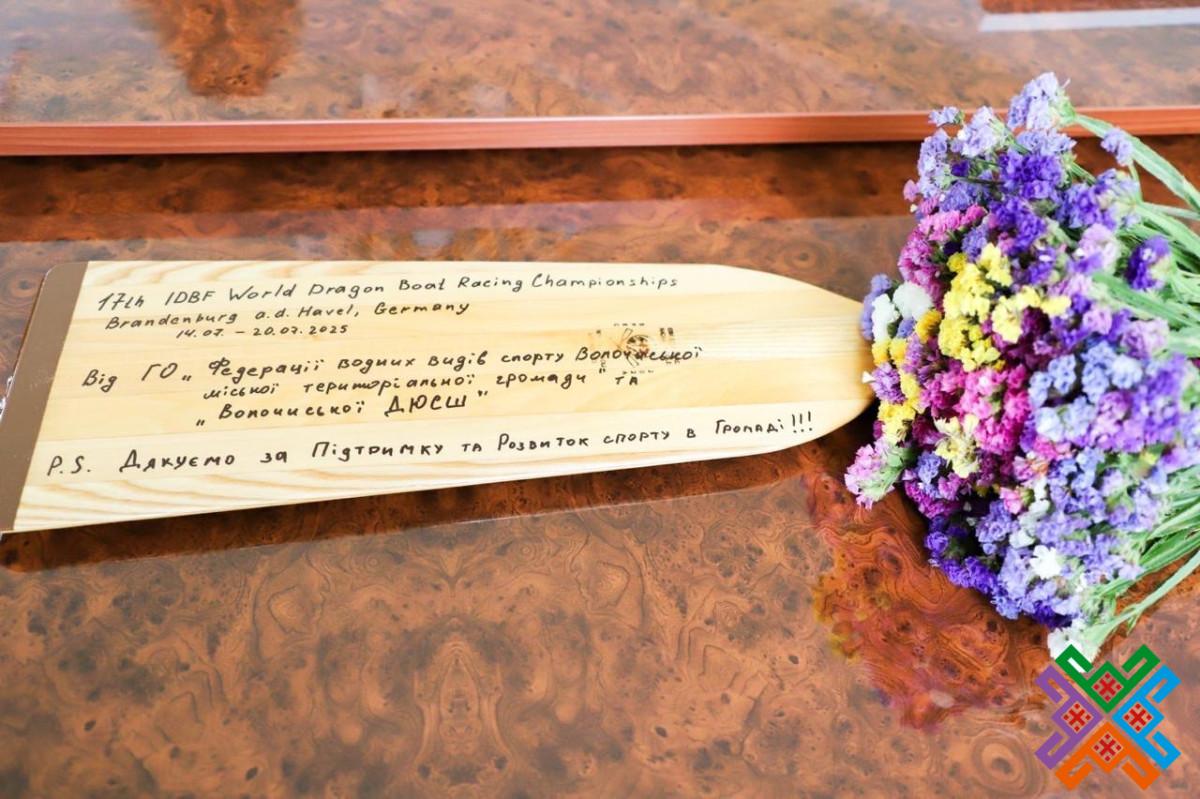 17th IDBF World Dragon Boat Racing Championships
Brandenburg a.d. Havel, Germany
14.07. – 20.07.2025
Від ГО „Федерації водних видів спорту Волочиської
міської територіальної громади" та
„Волочиської ДЮСШ"
P.S. Дякуємо за Підтримку та Розвиток спорту в Громаді!!!